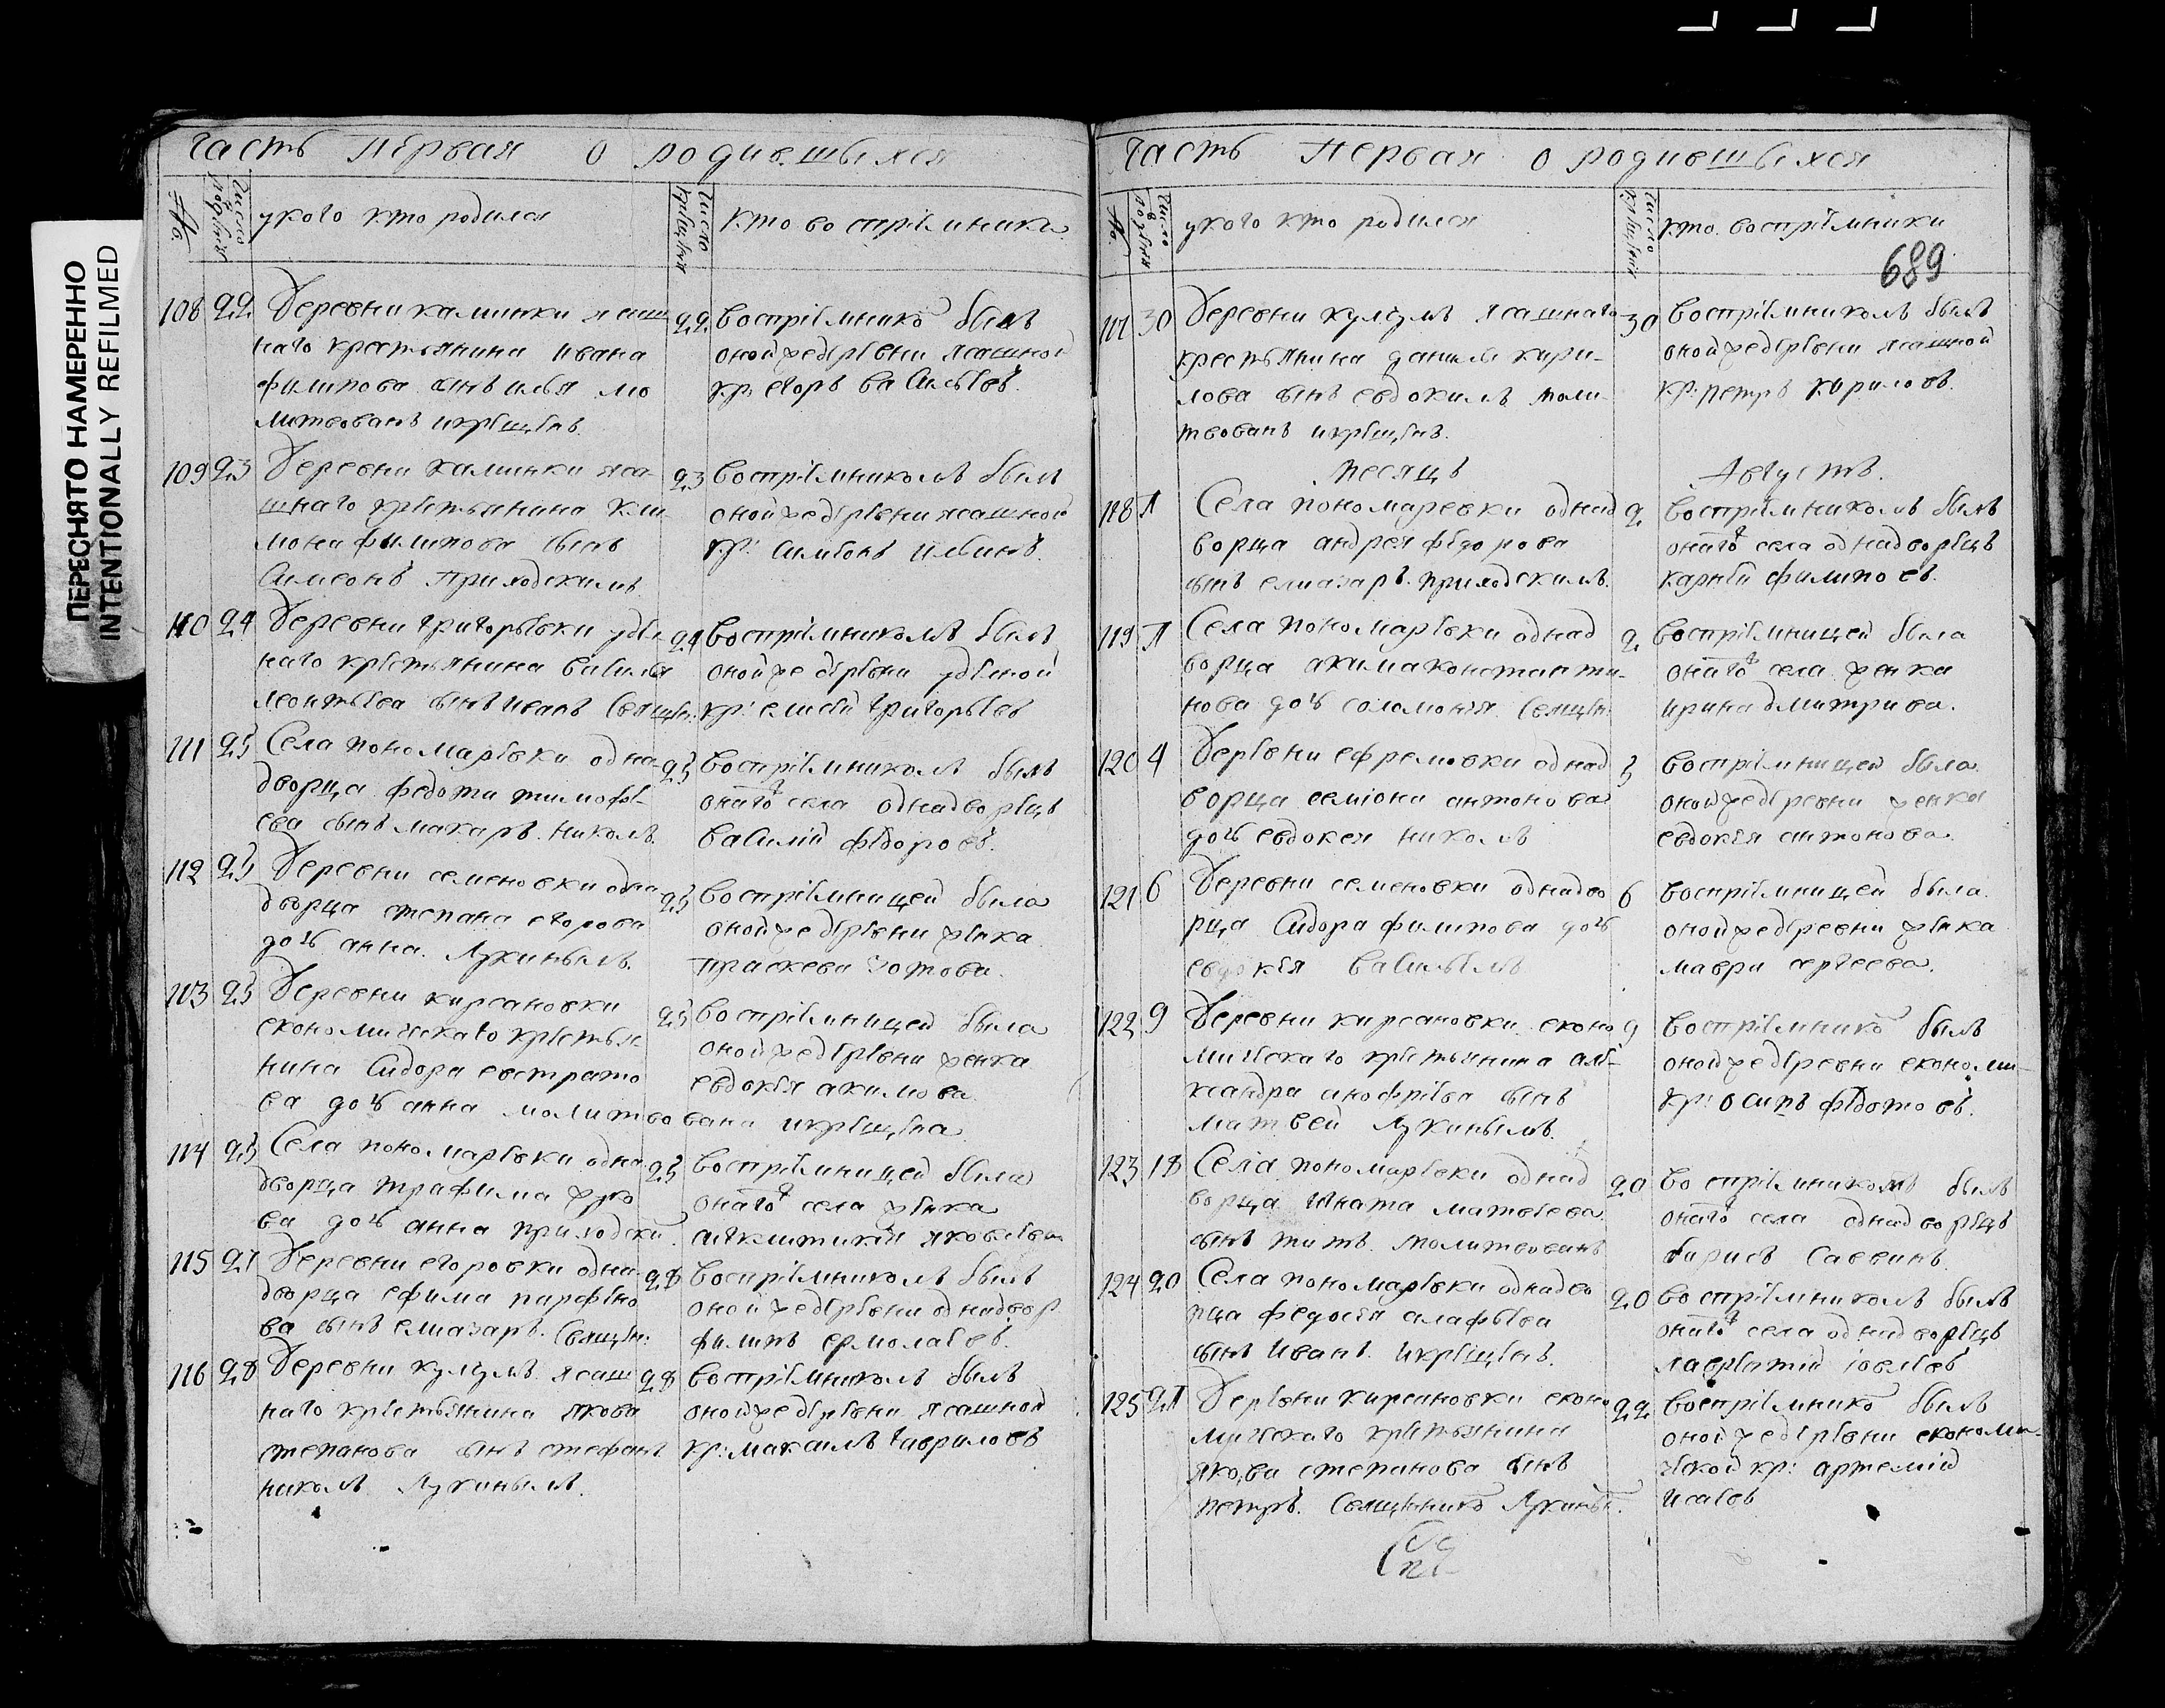 ПЕРЕСНЯТО НАМЕРЕННО
INTENTIONALLY REFILMED
часть первая о родившыхся
№
число рождения
укого кто родился
число крещения
кто воспріемники
108 22 Деревни калинки ясаш
наго крестьянина ивана
филипова сынъ илья мо
литвованъ икрещенъ
22 воспріемнико былъ
онойжедеревни ясашной
кр: егоръ васильевъ
109 23 Деревни калинки яса
шнаго крестьянина
филипова сынъ
Симеонъ приходскимъ
23 воспріемникомъ былъ
онойжедеревни ясашной
кр: Симеонъ ильинъ
110 24 Деревни григорьевки удел
наго крестьянина василья
леонтьева сынъ иванъ священ:
24 воспріемникомъ былъ
онойжедеревни уделной
кр: елисей григорьевъ
111 25 Села пономаревки одна
дворца федота тимофе
ева сынъ макаръ николъ
25 воспріемникомъ былъ
онаго села однадворецъ
василій федоровъ
112 25 Деревни семеновки одна
дворца степана егорова
дочь анна. Лукинымъ.
25 воспріемницей была
онойжедеревни женка
праскева зотова.
103 25 Деревни кирсановки
економическаго крестья
нина Сидора евстрато
ва дочь анна молитвована икрещена
25 воспріемницей была
онойжедеревни женка
евдокія акимова
114 25 Села пономаревки одна
дворца трафима
ва дочь анна приходски
25 воспріемницей была
онаго села женка
яковлева
115 27 Деревни егоровки одна
дворца ефима парфено
ва сынъ елиазаръ. Священ:
28 воспріемникомъ былъ
онойжедеревни однадвор
филипъ ермолаевъ
116 28 Деревни ясаш
наго крестьянина якова
степанова сынъ стефанъ
николъ Лукинымъ
28 воспріемникомъ былъ
онойжедеревни ясашной
кр: максимъ гавриловъ
часть первая о родившыхся
№
число рождения
укого кто родился
число крещения
кто воспріемники
689
30 Деревни ясашнаго
крестьянина данилы кири
лова сынъ евдокимъ моли
твованъ икрещенъ.
30 воспріемникомъ былъ
онойжедеревни ясашной
кр: петръ кириловъ.
месяцъ Августъ.
118 1 Села пономаревки однад
ворца андрея федорова
сынъ елиазаръ. приходскимъ.
2 воспріемникомъ былъ
онаго села однадворецъ
карней филиповъ.
119 1 Села пономаревки однад
ворца акима константи
нова дочь соломонія Священ:
2 воспріемницей была
онаго села женка
ирина дмитрива.
120 4 Деревни ефремовки однад
ворца семіона антонова
дочь евдокея николъ
5 воспріемницей была
онойжедеревни женка
евдокія антонова
121 6 Деревни семеновки однадво
рца Сидора филипова дочь
евдокія васильемъ
6 воспріемницей была
онойжедеревни женка
мавра сергеева.
122 9 Деревни кирсановки еконо
мическаго крестьянина але
ксандра анофріева сынъ
матвей Лукинымъ
9 воспріемнико былъ
онойжедеревни економи
кр: осипъ федотовъ.
123 18 Села пономаревки однад
ворца игната матвеева
сынъ титъ. молитвованъ
20 воспріемникомъ былъ
онаго села однадворецъ
барисъ Саввинъ
124 20 Села пономаревки однадво
рца федосія
сынъ иванъ. икрещенъ.
20 воспріемникомъ былъ
онаго села однадворецъ
лаврентій іовлевъ
125 21 Деревни кирсановки еконо
мическаго крестьянина
якова степанова сынъ
петръ. Священнико Лукины.
22 воспріемнико былъ
онойжедеревни економи
ческой кр: артемій
исаевъ